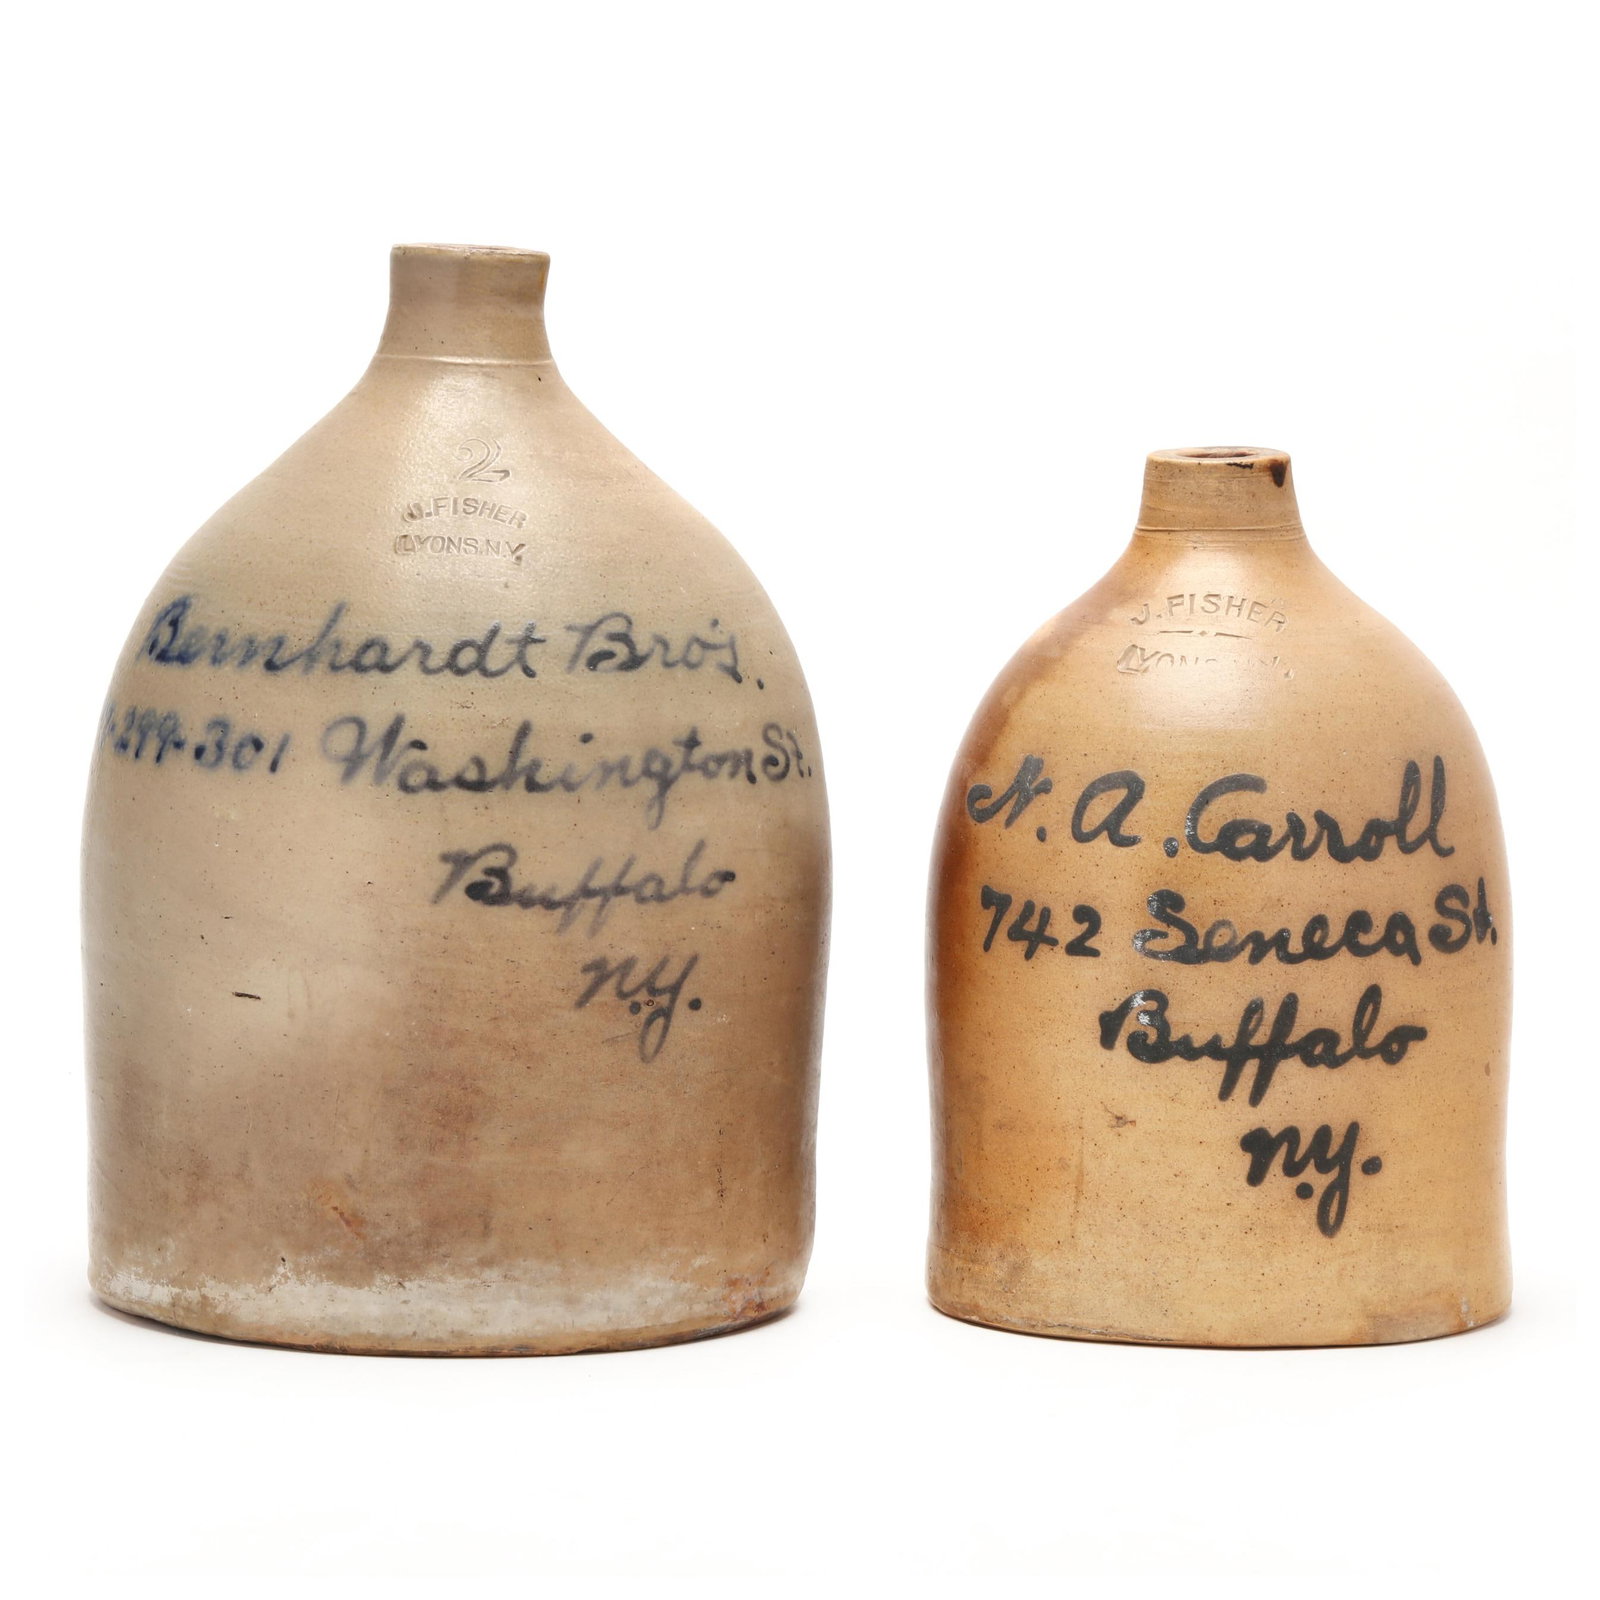 2
J.FISHER
LYONS.N.Y.
Bernhardt Bro's.
299-301 Washington St.
Buffalo
N.Y.
J.FISHER
LYONS N.Y.
N. A. Carroll
742 Seneca St.
Buffalo
N.Y.